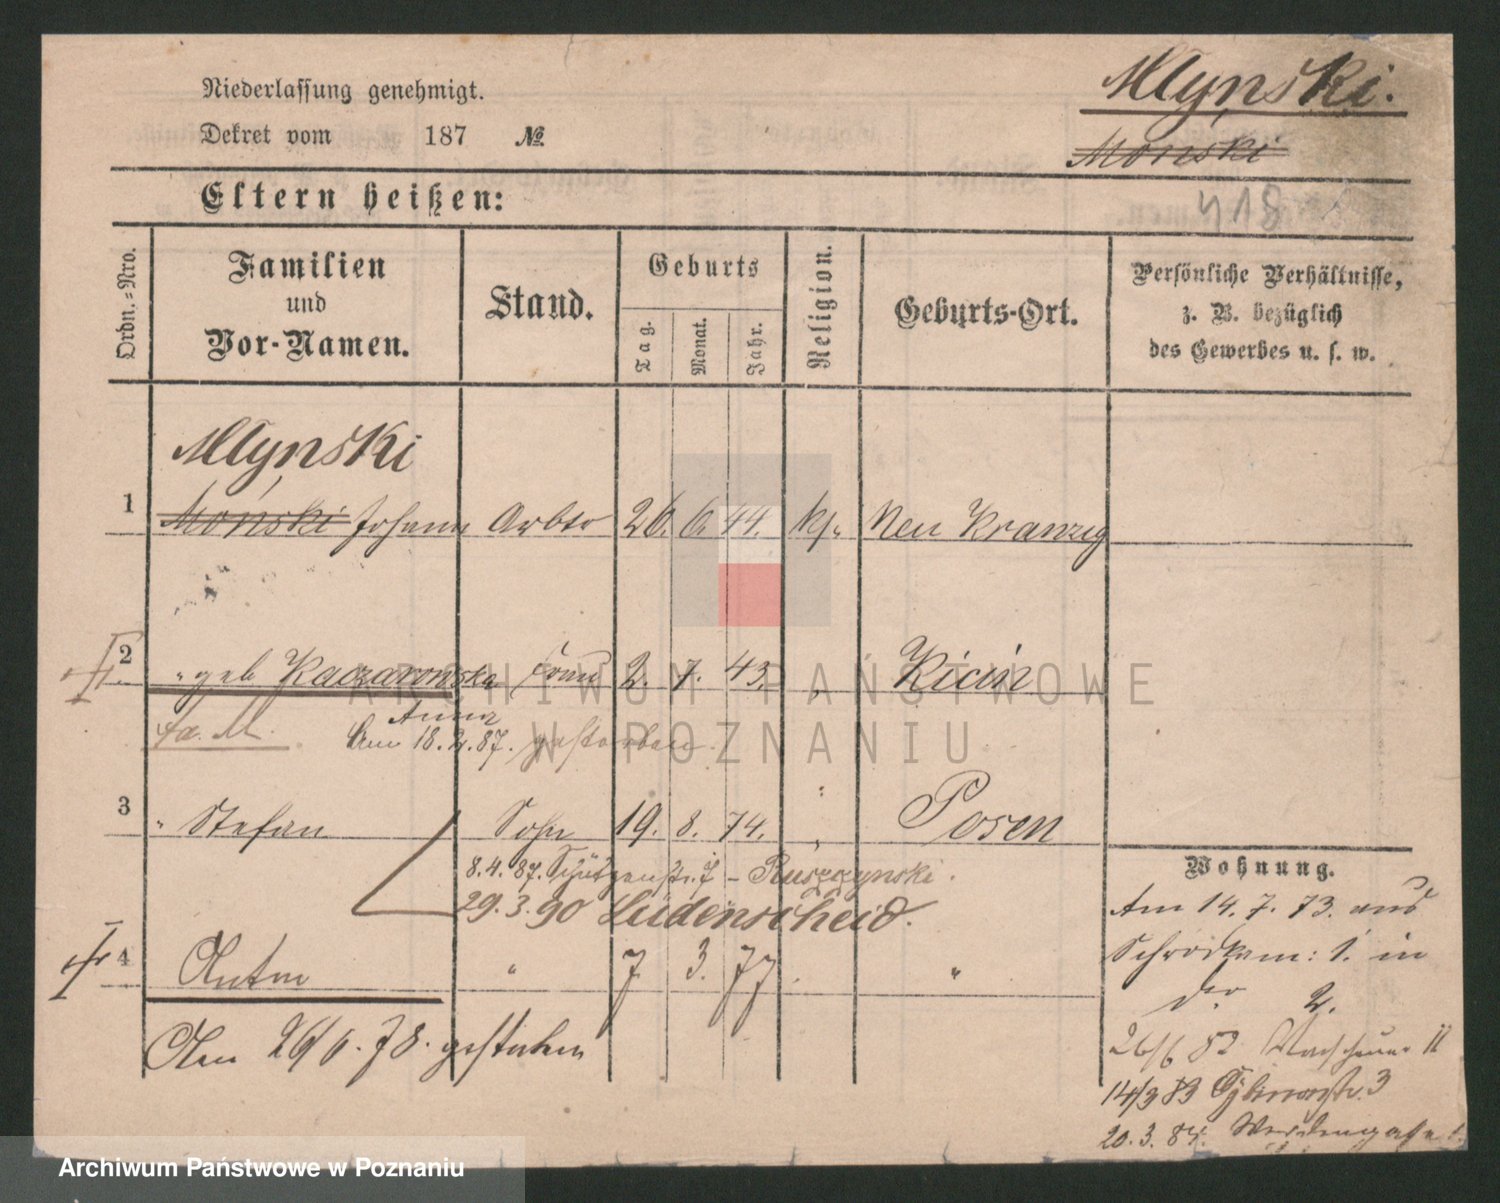 Niederlassung genehmigt.
Dekret vom 187 №
Młynski.
Monski
418
Eltern heißen:
Ordn.=Nro.
Familien und Vor-Namen.
Stand.
Geburts
Tag.
Monat.
Jahr.
Religion.
Geburts-Ort.
Persönliche Verhältnisse,
z. B. bezüglich
des Gewerbes u. s. w.
Młynski
1 Moński Johann Arbtr 26. 6. 44. kf. Neu Kranzig
2 " geb Kaczarowska Frau 2. 7. 43. " Kicin
Anna
fr. M. Am 18.2.87. gestorben.
3 " Stefan Sohn 19. 8. 74. " Posen
8.4.87. Schützenstr. 7 - Ruszczynski.
29.3.90 Lüdenscheid.
4 Anton " 7 3. 77. "
Am 26/6. 78. gestorben
Wohnung.
Am 14. 7. 73. aus
in
der 2.
26/6 82
14/3 83 3
20. 3. 84.
ARCHIWUM PAŃSTWOWE
W POZNANIU
Archiwum Państwowe w Poznaniu